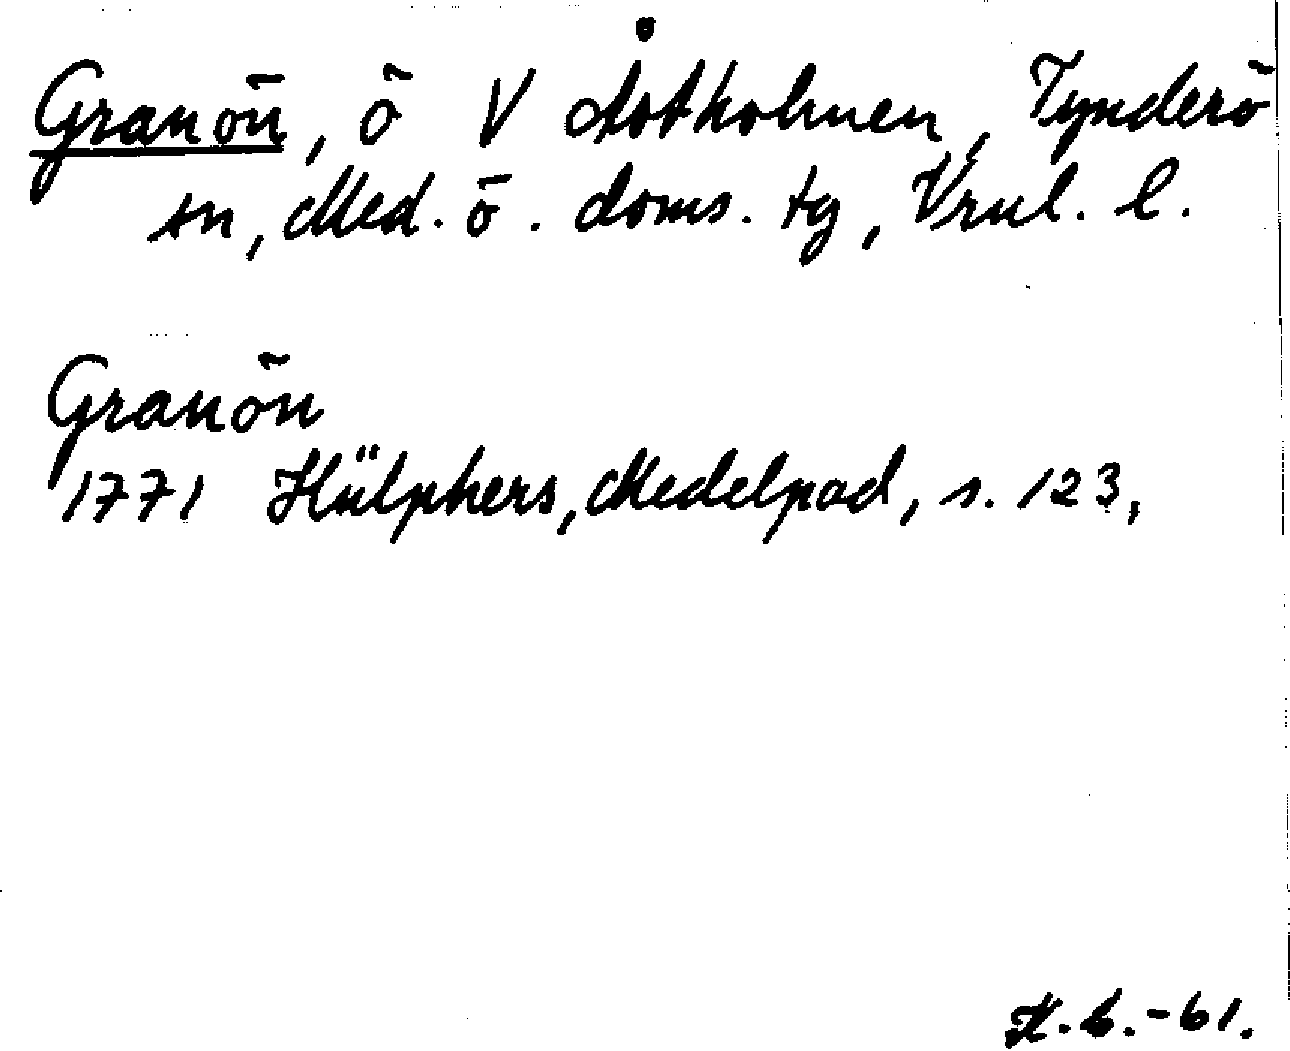 Granön, ö V Åstholmen, Tynderö
sn, Med. ö. doms. tg, Vrnl. l.
Granön
1771 Hülphers, Medelpad, s. 123,
K.L.-61.